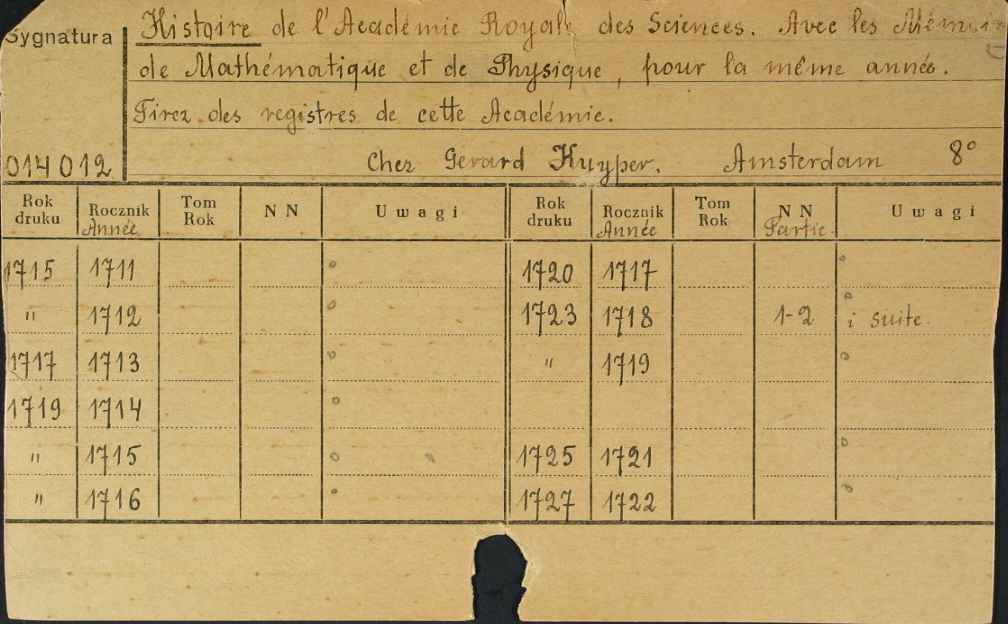 Sygnatura
Histoire de l'Académie Royale des Sciences. Avec les Mémoir
de Mathématique et de Physique, pour la même année.
Tirez des registres de cette Académie.
014012 Chez Gerard Kuyper. Amsterdam 8°
Rok druku Rocznik Année Tom Rok NN Uwagi Rok druku Rocznik Année Tom Rok NN Partie Uwagi
1715 1711 ° 1720 1717 °
" 1712 ° 1723 1718 1-2 ° i suite.
1717 1713 ° " 1719 °
1719 1714 °
" 1715 ° 1725 1721 °
" 1716 ° 1727 1722 °